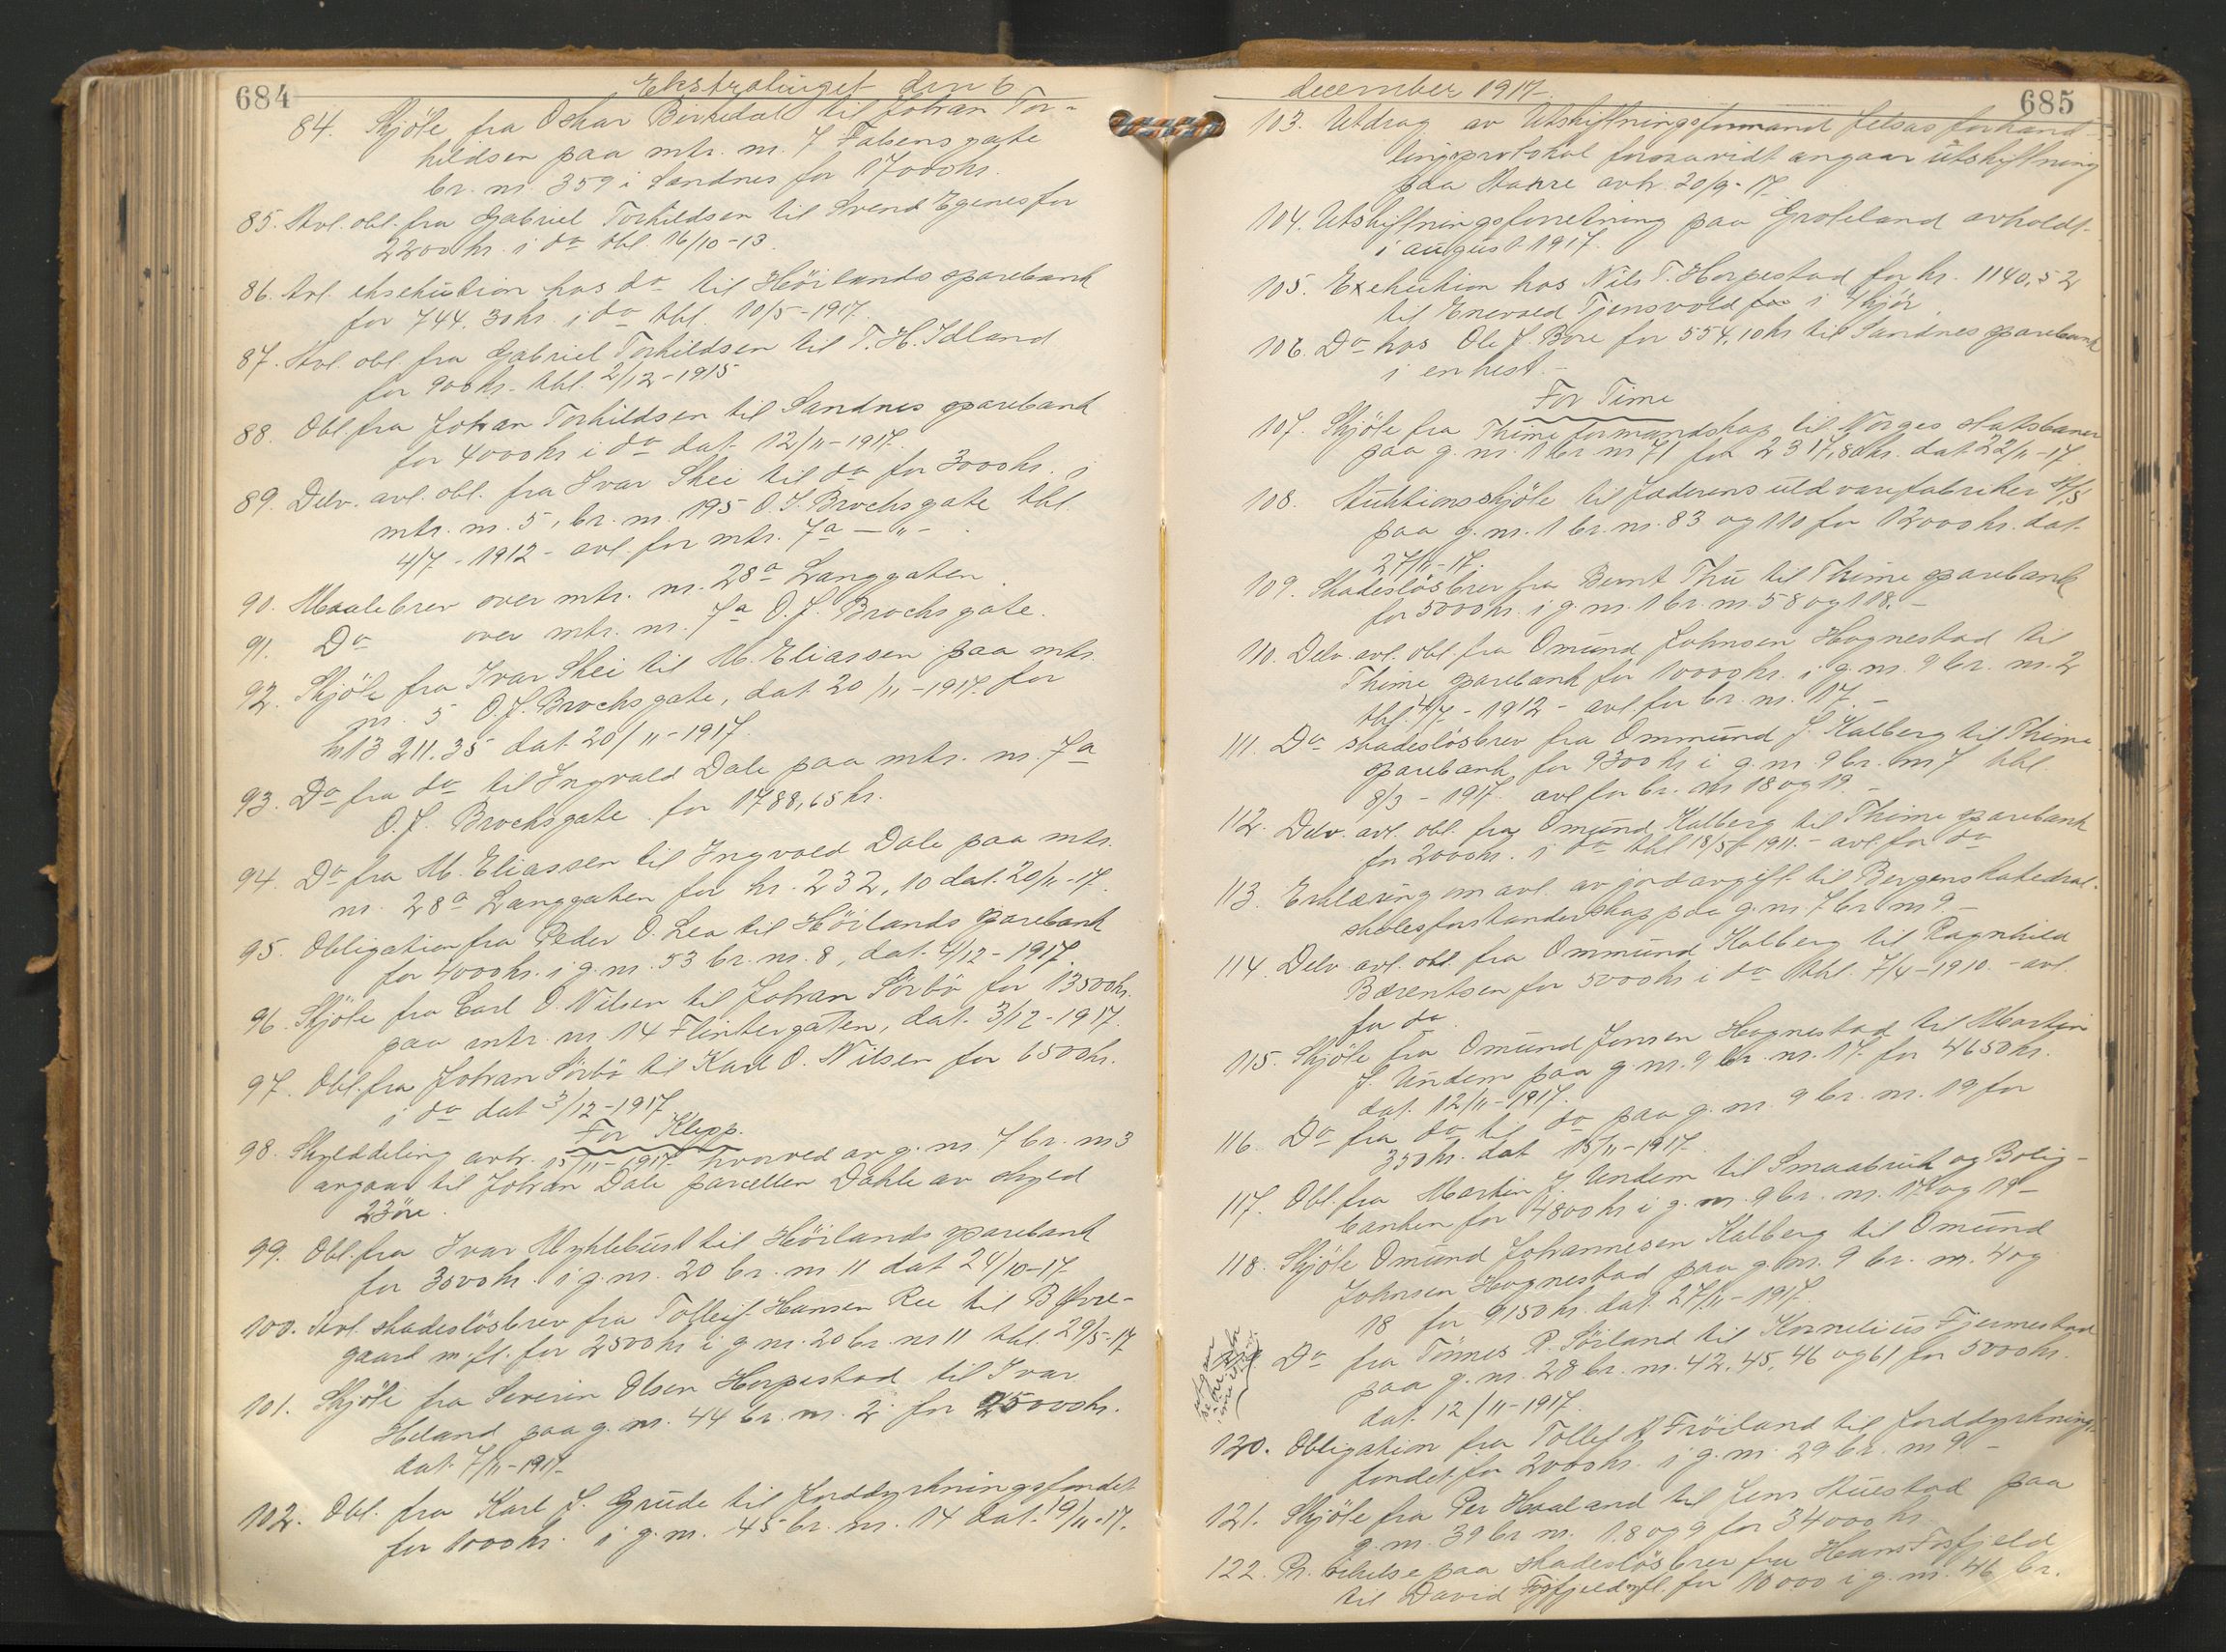 684
Ekstratinget den 6
84. Skjöte fra Oskar Birkedal til Johan Tor-
kildsen paa mtr. nr. 7 Falsens gate
br. nr. 359 i Sandnes for 17000 kr.
85. Avl. obl. fra Gabriel Torkildsen til Svend Egenes for
2200 kr. i do tbl. 16/10-13
86. Avl. eksekution hos do til Höilands sparebank
for 744.30 kr. i do tbl. 10/5-1917.
87. Avl. obl. fra Gabriel Torkildsen til T. H. Idland
for 900 kr. tbl. 2/12-1915
88. Obl. fra Johan Torkildsen til Sandnes sparebank
for 4000 kr i do dat. 12/11-1917.
89. Delv. avl. obl. fra Ivar Skei til do for 3000 kr. i
mtr. nr. 5, br. nr. 195 O. J. Brochsgate tbl.
4/7-1912 - avl. for mtr. 7a - " -
90. Maalebrev over mtr. nr. 28a Langgaten.
91. Do over mtr. nr. 7a O. J. Brochs gate.
92. Skjöte fra Ivar Skei til M. Eliassen paa mtr.
nr. 5 O. J. Brochsgate, dat. 20/11-1917. for
kr 13 211.35 dat. 20/11-1917.
93. Do fra do til Ingvald Dale paa mtr. nr. 7a
O. J. Brochsgate for 1788,65 kr.
94. Do fra M. Eliassen til Ingvald Dale paa mtr.
nr. 28a Langgaten for kr. 232,10 dat. 20/11-17.
95. Obligation fra Peder O. Lea til Höilands sparebank
for 4000 kr. i g. nr. 53 br. nr. 8, dat. 4/12-1917.
96. Skjöte fra Carl O. Nilsen til Johan Sörbö for 13500 kr.
paa mtr. nr. 14 Flintergaten, dat. 3/12-1917.
97. Obl. fra Johan Sörbö til Karl O. Nilsen for 6500 kr.
i do dat 3/12-1917
For Klepp.
98. Skylddeling avh. 15/11-1917 hvorved av g. nr 7 br. nr 3
avgaar til Johan Dale parcellen Dahle av skyld
23 öre.
99. Obl. fra Ivar Myklebust til Höilands sparebank
for 3000 kr. i g. nr. 20 br. nr 11 dat 24/10-17
100. Avl. skadeslösbrev fra Tolleif Hansen Ree til B Øvre-
gaard m. fl. for 2500 kr i g nr. 20 br. nr 11 tbl. 29/5-17
101. Skjöte fra Severin Olsen Horpestad til Ivar
Heland paa g. nr. 44 br. nr. 2 for 25000 kr.
dat. 7/11-1917-
102. Obl. fra Karl J. Grude til Jorddyrkningsfondet
for 1000 kr. i g. nr. 45 br. nr. 14 dat. 19/11-17.
685
december 1917-
103. Utdrag av Utskiftningsformand felsas forhand-
lingsprotokol forsaavidt angaar utskiftning
paa avh. 20/9-17
104. Utskiftningsforretning paa Groteland avholdt
i august 1917.
105. Exekution hos Nils T. Horpestad for kr. 1140,52
til Enevald Tjensvold i
106. Do hos Ole J. Bore for 554,10 kr til Sandnes sparebank
i en hest. -
For Time
107. Skjöte fra Thime formandskap til Norges statsbaner
paa g. nr. 1 br. nr 71 for 2317,80 kr. dat. 22/11-17.
108. Auktionsskjöte til Jæderens uldvarefabriker A/S
paa g. nr. 1 br. nr. 83 og 110 for 12000 kr. dat.
27/11-17.
109. Skadeslösbrev fra Bernt Thu til Thime sparebank
for 5000 kr. i g. nr. 1 br. nr. 58 og 118. -
110. Delv. avl. obl. fra Omund Johnsen Hognestad til
Thime sparebank for 10000 kr. i g. nr. 9 br. nr. 2
tbl. 4/7-1912 - avl. for br. nr. 17. -
111. Do skadeslösbrev fra Ommund J. Kalberg til Thime
sparebank for 9300 kr i g. nr. 9 br. nr 7 tbl.
8/3-1917. avl for br. nr 18 og 19. -
112. Delv. avl. obl. fra Omund Kalberg til Thime sparebank
for 2000 kr. i do tbl 18/5-1911. - avl. for do
113. Erklæring om avl. av jordavgift til Bergens katedral-
skolesforstanderskap paa g. nr. 7 br nr 9. -
114. Delv. avl. obl. fra Ommund Kalberg til Ragnhild
Bærentsen for 5000 kr i do tbl. 7/4-1910. - avl.
for do.
115. Skjöte fra Omund Jonsen Hognestad til Martin
J. Undem paa g. nr. 9 br. nr. 17. for 4650 kr.
dat. 12/11-1917.
116. Do fra do til do paa g. nr. 9 br. nr. 19 for
350 kr. dat 15/11-1917.
117. Obl. fra Martin J. Undem til Smaabruk og Bolig-
banken for 4800 kr i g. nr. 9 br. nr. 17 og 19-
118. Skjöte Omund Johannesen Kalberg til Omund
Johnsen Hognestad paa g. nr. 9 br. nr. 4 og
18 for 9150 kr. dat. 27/11-1917.
Do fra Tönnes P. Sörland til Kornelius Fjermestad
paa g. nr. 28 br. nr. 42, 45, 46 og 61 for 5000 kr.
dat. 12/11-1917.
120. Obligation fra Tollef N Fröiland til Jorddyrknings-
fondet for 2000 kr. i g. nr. 29 br. nr 9 -
121. Skjöte fra Per Haaland til Jens Auestad paa
g. nr. 39 br nr. 1, 8 og 9 for 34000 kr.
122. Pr. vikelse paa skadeslösbrev fra Hans Fosfjeld
til David Fosfjeld m. fl. for 10000 i g. nr. 46 br.